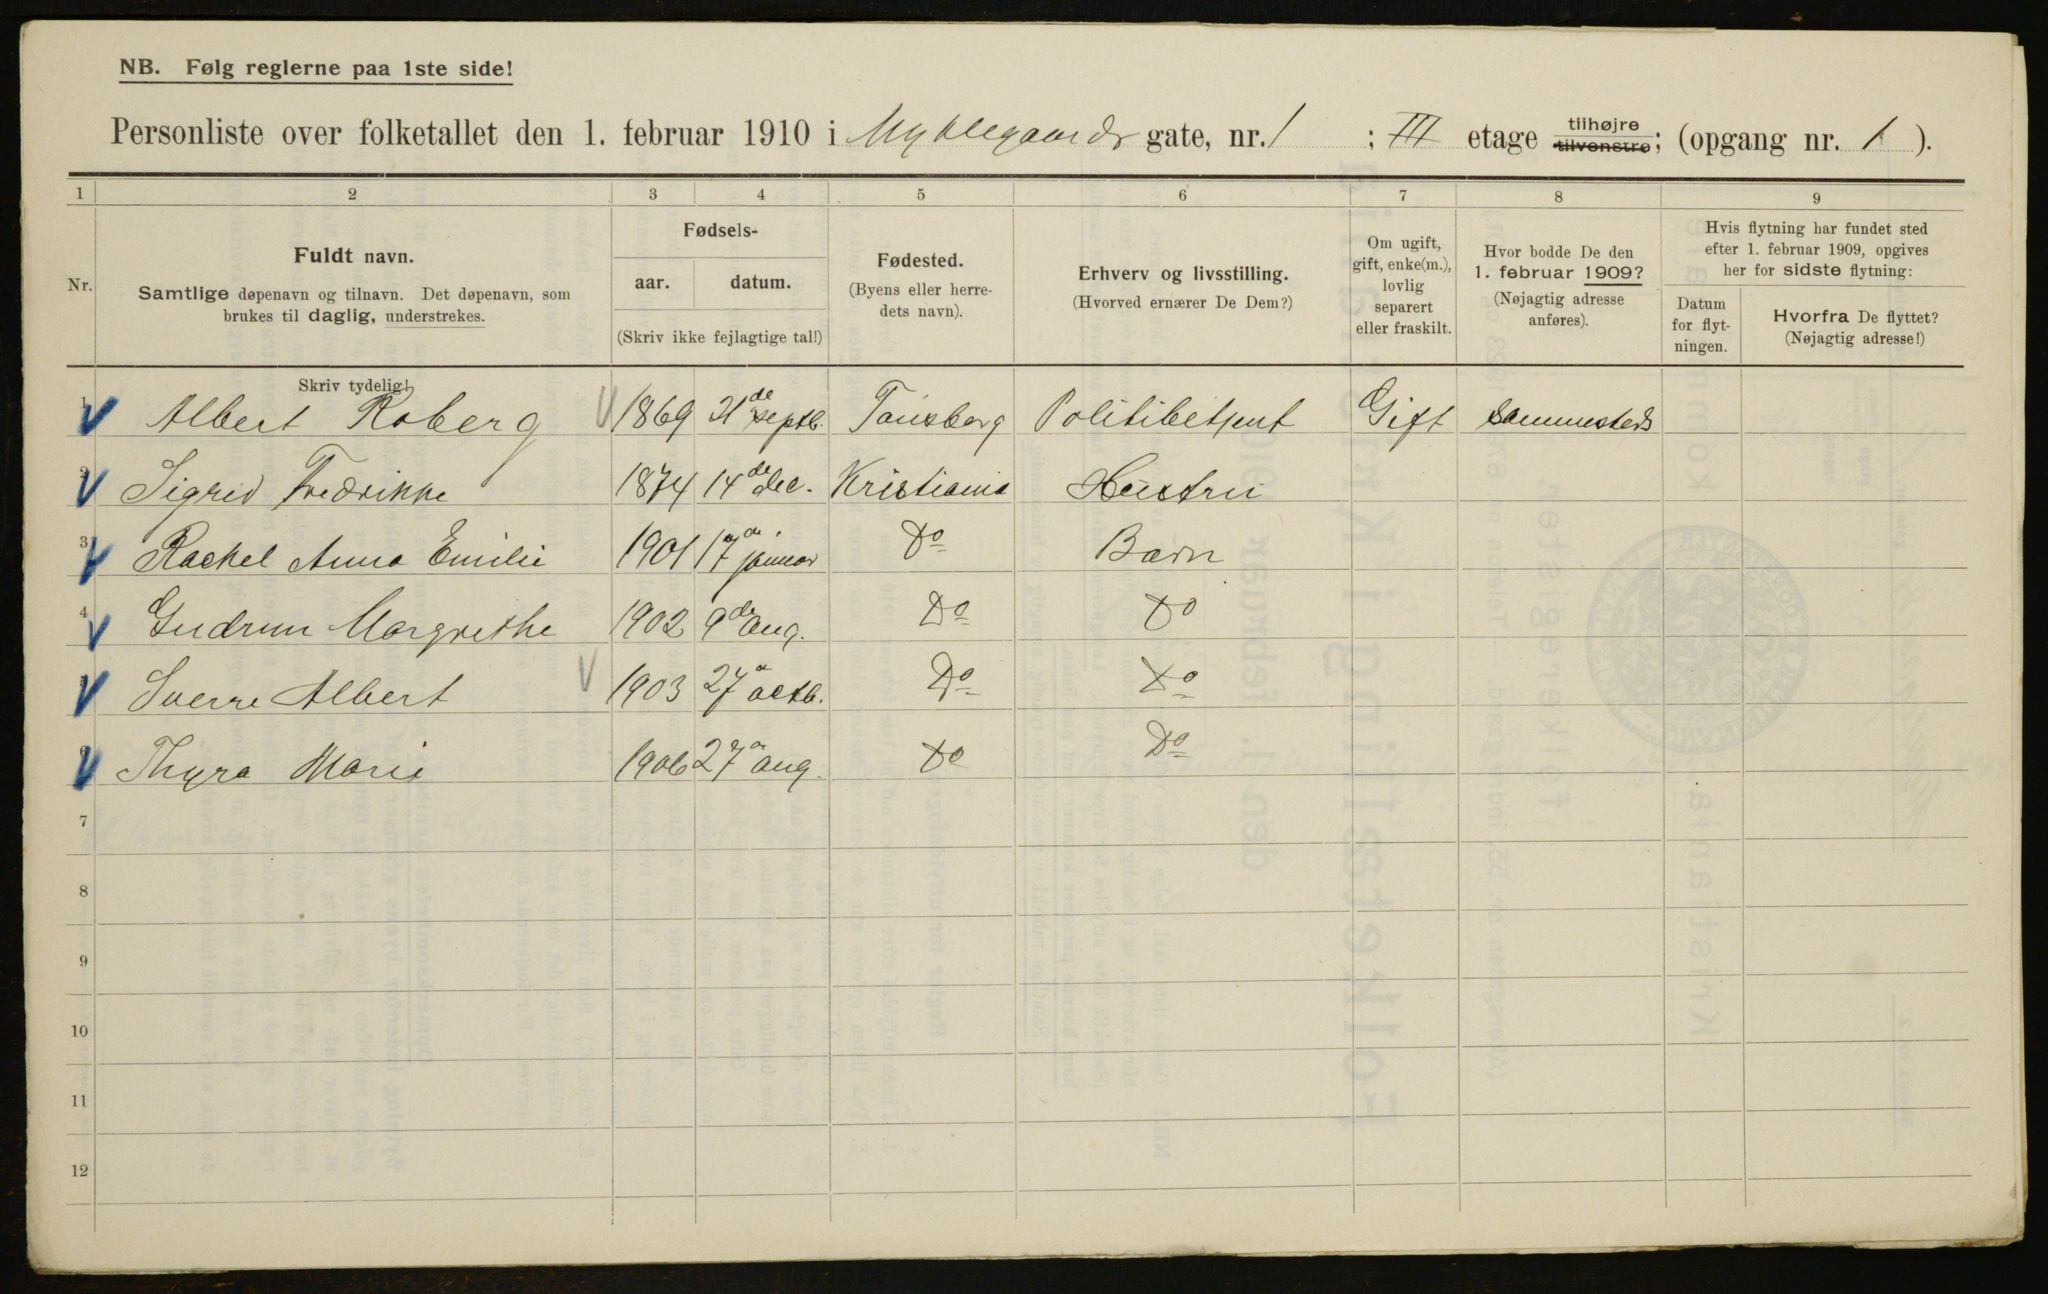 NB. Følg reglerne paa 1ste side!
Personliste over folketallet den 1. februar 1910 i Myklegaards gate, nr. 1 ; III etage tilhøjre tilvenstre; (opgang nr. 1 ).
1 2 3 4 5 6 7 8 9
Nr.
Fuldt navn.
Samtlige døpenavn og tilnavn. Det døpenavn, som
brukes til daglig, understrekes.
Fødsels-
aar. datum.
(Skriv ikke fejlagtige tal!)
Fødested.
(Byens eller herre-
dets navn).
Erhverv og livsstilling.
(Hvorved ernærer De Dem?)
Om ugift,
gift, enke(m.),
lovlig
separert
eller fraskilt.
Hvor bodde De den
1. februar 1909?
(Nøjagtig adresse
anføres).
Hvis flytning har fundet sted
efter 1. februar 1909, opgives
her for sidste flytning:
Datum
for flyt-
ningen.
Hvorfra De flyttet?
(Nøjagtig adresse!)
Skriv tydelig!
1 Albert Roberg 1869 21de septb. Tønsberg Politibetjent Gift Sammesteds
2 Sigrid Fredrikke 1874 14de dec. Kristiania Hustru
3 Rachel Anna Emilie 1901 17de januar Do Barn
4 Gudrun Margrethe 1902 9de aug. Do Do
5 Sverre Albert 1903 27de octb. Do Do
6 Thyra Marie 1906 27de aug. Do Do
7
8
9
10
11
12